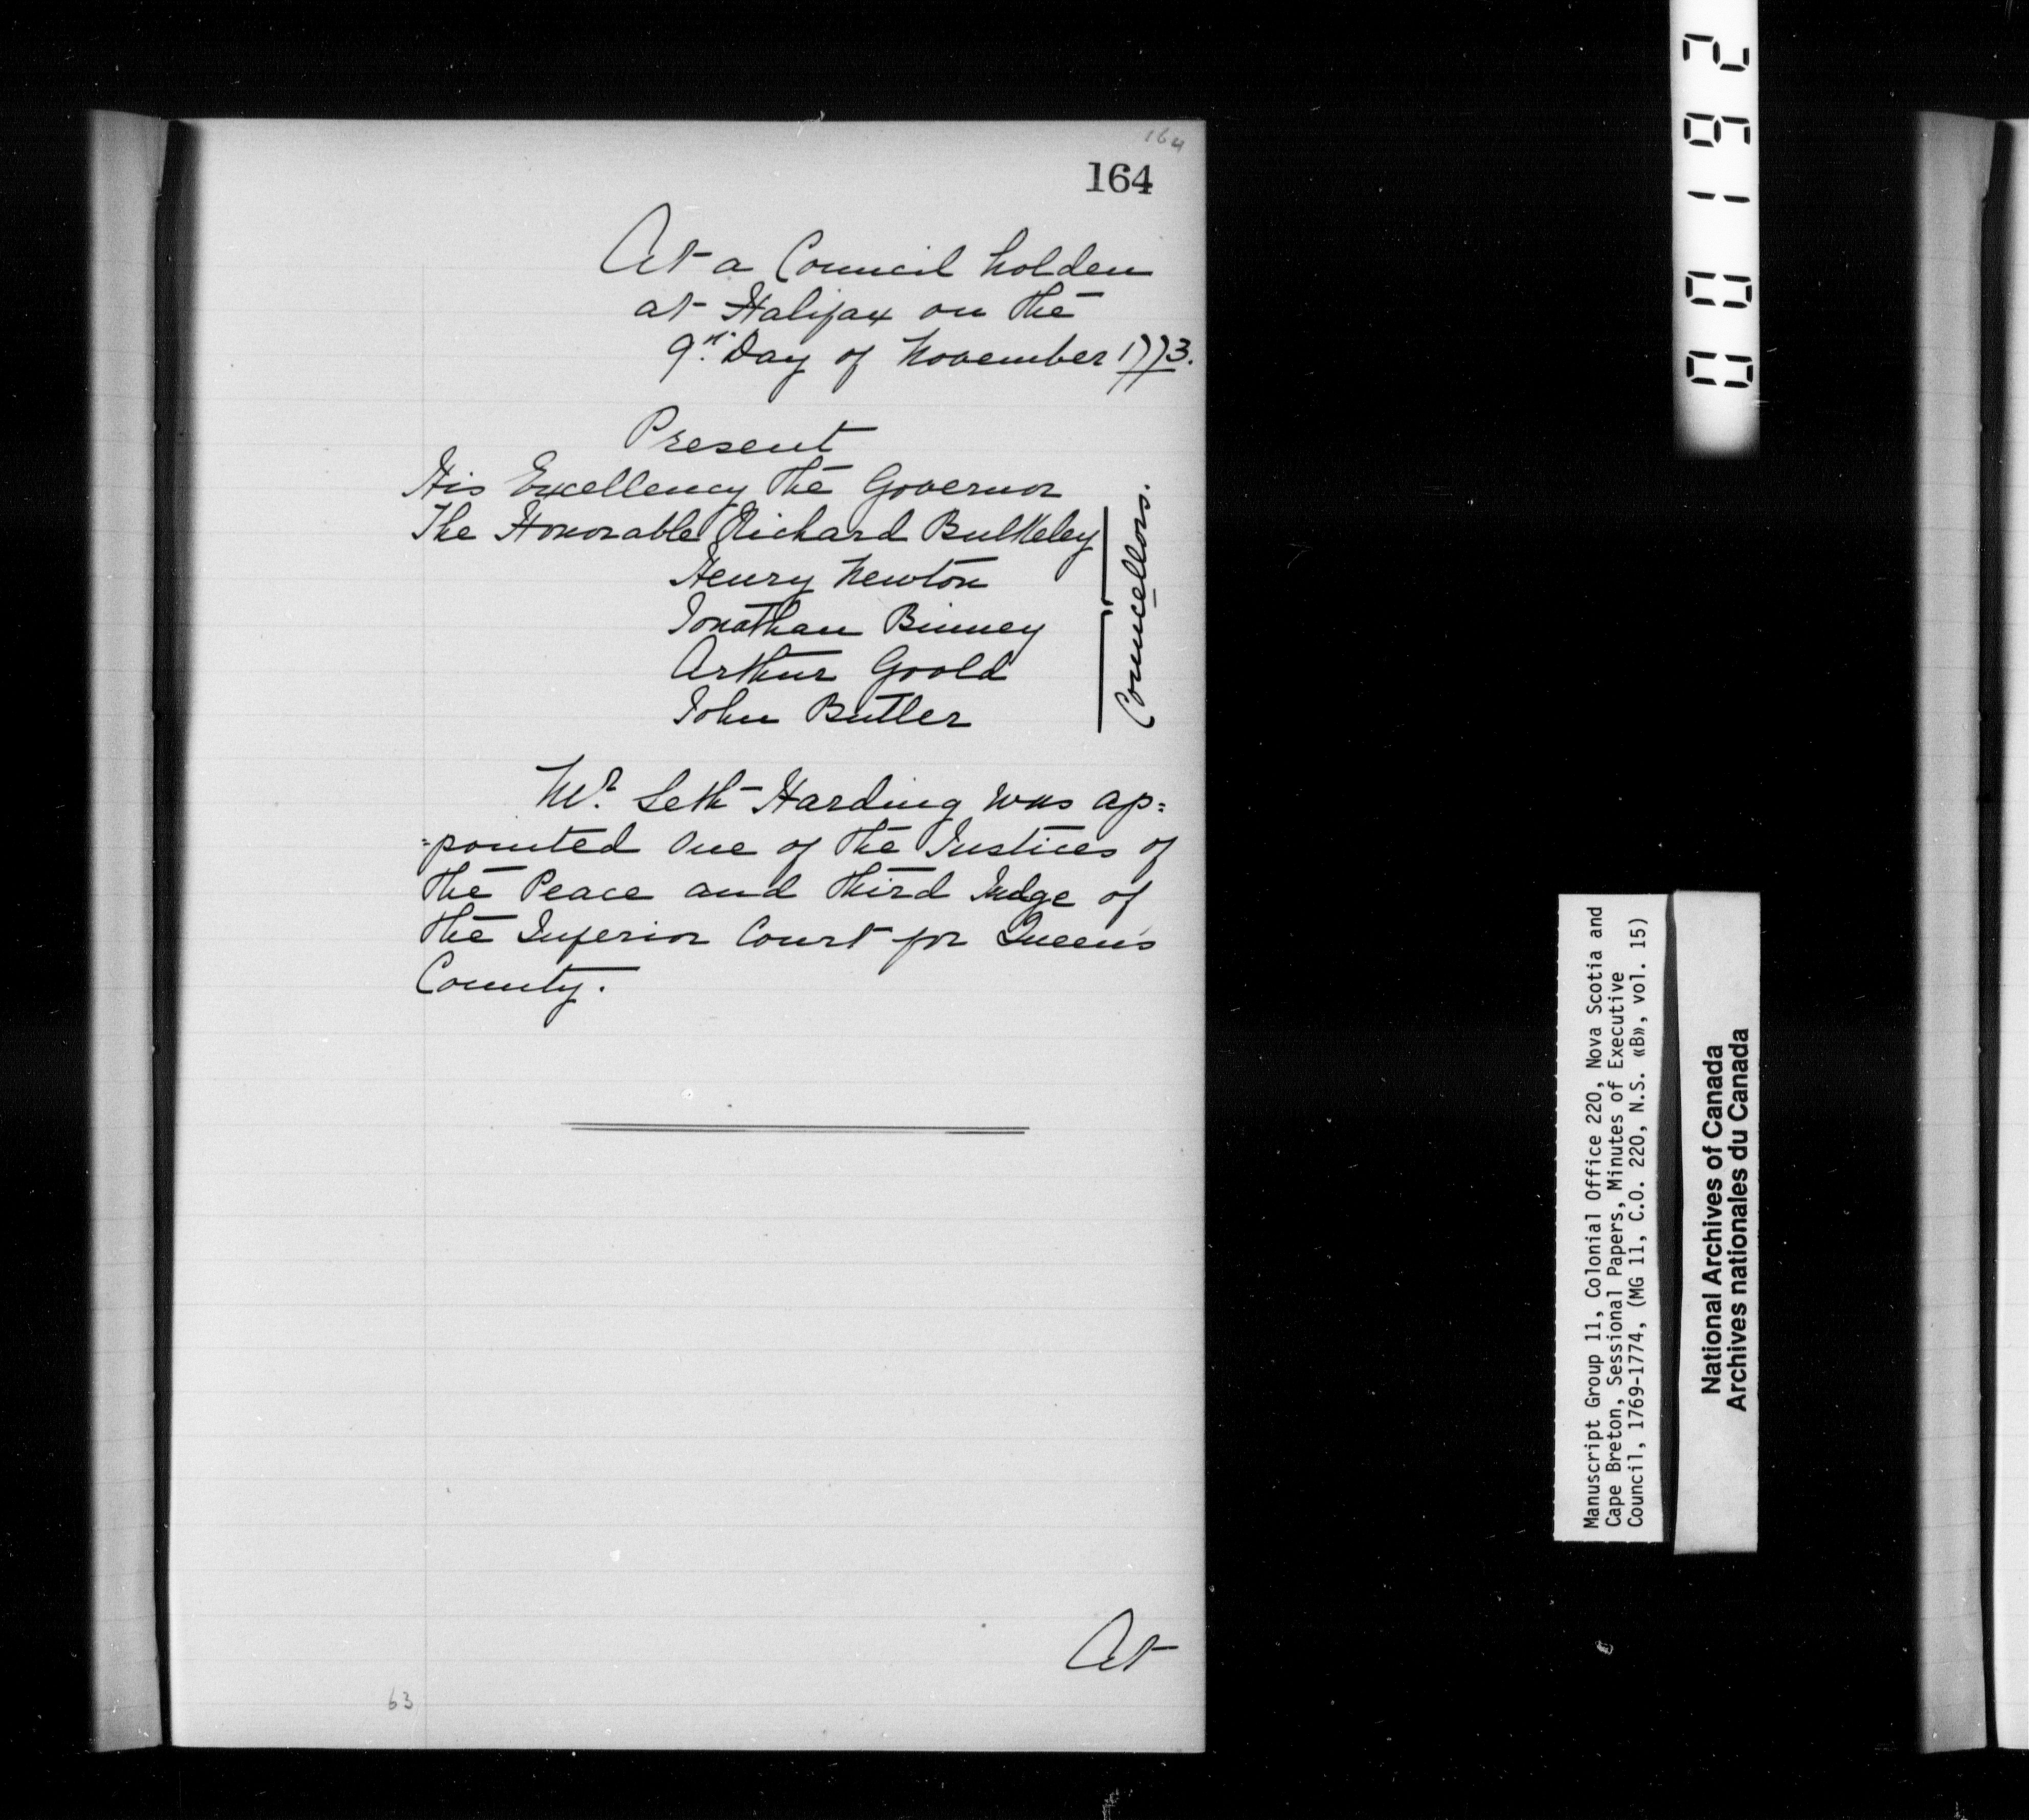 164
164
At a Council holden
at Halifax on the
9th. Day of November 1773.
Present
His Excellency the Governor
The Honorable Richard Bulkeley
Henry Newton
Jonathan Binney
Arthur Goold
John Butler
Councellors.
Mr. Seth Harding was ap=
=pointed One of the Justices of
the Peace and third Judge of
the Inferior Court for Queens
County.
At
63
00192
Manuscript Group 11, Colonial Office 220, Nova Scotia and
Cape Breton, Sessional Papers, Minutes of Executive
Council, 1769-1774, (MG 11, C.O. 220, N.S. «B», vol. 15)
National Archives of Canada
Archives nationales du Canada